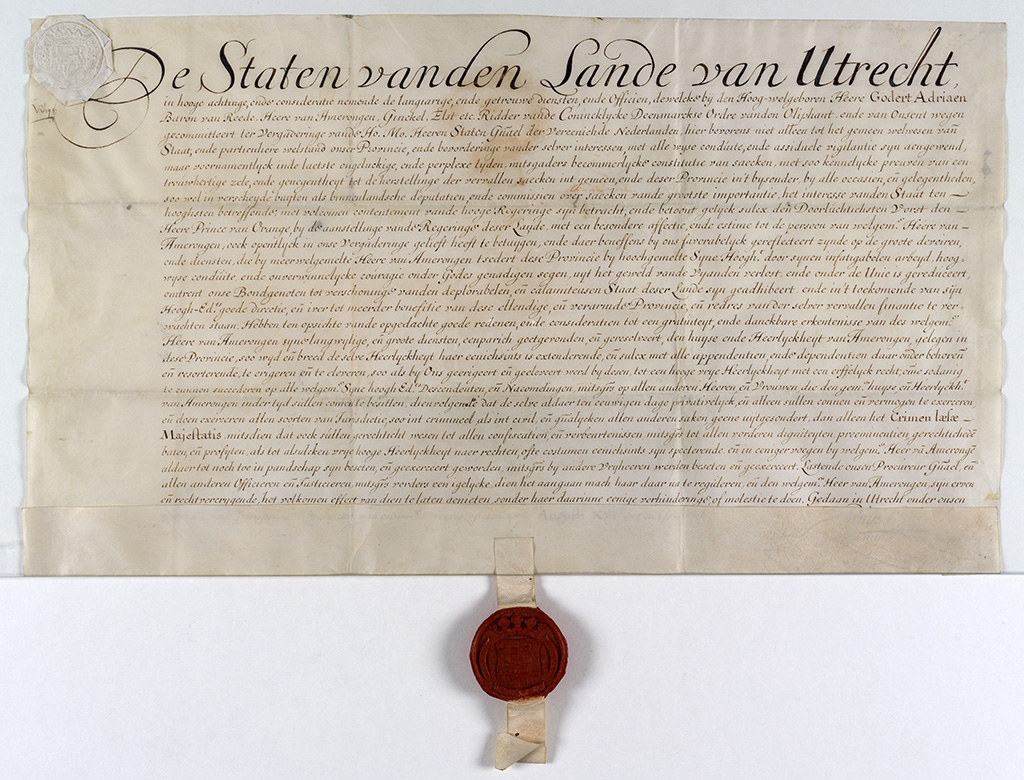 De Staten vanden Lande van Utrecht,
in hooge achtinge, ende consideratie nemende de langiarige, ende getrouwe diensten, ende Officien, dewelcke by den Hoog-welgeboren Heere Godert Adriaen
Baron van Reede, Heere van Amerongen, Ginckel, Elst etc. Ridder vande Conincklycke Deenmarckse Ordre vanden Oliphant, ende van Onsent wegen
gecommitteert ter Vergaderinge vande Ho. Mo. Heeren Staten Gnael der Vereenichde Nederlanden, hier bevorens niet alleen tot het gemeen welwesen van
Staat, ende particuliere welstand onser Provincie, ende bevorderinge vander selver interessen, met alle wyse conduite, ende assiduele vigilantie syn aengewend,
maar voornamentlyck inde laetste ongeluckige, ende perplexe tyden, mitsgaders becommerlycke constitutie van saecken, met soo kennelycke preuven van een
trouwhertige zele, ende genegentheyt tot de herstellinge der vervallen saecken int gemeen, ende deser Provincie in't bysonder, by alle occasien, en gelegentheden,
soo wel in verscheyde buyten als binnenlandsche deputatien, ende commissien over saecken vande grootste importantie, het interesse vanden Staat ten
hooghsten betreffende, met volcomen contentement vande hooge Regeringe syn betracht, ende betoont gelyck sulcx den Doorluchtichsten Vorst den
Heere Prince van Orange, by de aanstellinge vande Regeringe deser Lande, met een besondere affectie, ende estime tot de persoon van welgem. Heere van
Amerongen, oock opentlyck in onse Vergaderinge gelieft heeft te betuygen, ende daer beneffens by ons favorabelyck gereflecteert zynde op de groote devoiren,
ende diensten, die by meerwelgemelte Heere van Amerongen tsedert dese Provincie by hoochgemelte Syne Hoogh. door synen infatigabelen arbeyd, hoog-
wyse conduite, ende onverwinnelycke couragie onder Godes genadigen segen, uyt het geweld van de Vyanden verlost, ende onder de Unie is gereduceert,
omtrent onse Bondgenoten tot verschoninge vanden deplorabelen, en calamiteusen Staat deser Lande syn geadhibeert, ende in't toekomende van sijn
Hoogh-Ed. goede directie, en iver tot meerder benefitie van dese ellendige, en verarmde Provincie, en redres van der selver vervallen finantie te ver-
wachten staan, Hebben ten opsichte vande opgedachte goede redenen, ende consideratien tot een gratuiteyt, ende danckbare erkentenisse van des welgem.
Heere van Amerongen syne langwylige, en groote diensten, eenparich goetgevonden, en geresolveert, den huyse ende Heerlyckheyt van Amerongen, gelegen in
dese Provincie, soo wyd en breed de selve Heerlyckheyt haer eenichsints is extenderende, en sulcx met alle appendentien, ende dependentien daar onder behoren
en resorterende, te erigeren en te eleveren, soo als by Ons geerigeert en geeleveert werd by desen tot een hooge vrye Heerlyckheyt met een erffelyck recht, ome sodanig
te cunnen succederen op alle welgem. Syne hoogh Ed. Descendenten, en Nacomelingen, mitsgrs op allen anderen Heeren en Vrouwen die den gem. huyse en Heerlyckh.
van Amerongen inder tyd sullen comen te besitten, dienvolgende dat de selve aldaer ten eeuwigen dage privativelyck, en alleen sullen connen en vermogen te exerceren,
en doen exerceren allen soorten van Jurisdictie, soo int crimineel als int civil, en gnalycken allen anderen saken, geene uytgesondert, dan alleen het Crimen læsæ
Majestatis, mitsdien dat oock sullen gerechticht wesen tot allen confiscatien, en verbeurtenissen, mitsgrs tot allen vorderen digniteyten, preeminentien, gerechticheden
baten, en profyten, als tot alsulcken vrye hooge Heerlyckheyt naer rechten, ofte costumen eenichsints syn specterende, en in eeniger voegen by welgem. Heer van Amerongen
aldaer tot noch toe in pandschap syn beseten, en geexerceert geworden, mitsgrs by andere Vryheeren werden beseten en geexerceert. Lastende onsen Procureur Gnael, en
allen anderen Officieren en Justicieren, mitsgrs vorders een igelycke, dien het aangaen mach haar daar na te reguleren, en den welgem. Heer van Amerongen, syn erven
en recht vercrygende, het volkomen effect van dien te laten genieten, sonder haer daarinne eenige verhinderinge, of molestie te doen. Gedaan in Utrecht onder onsen